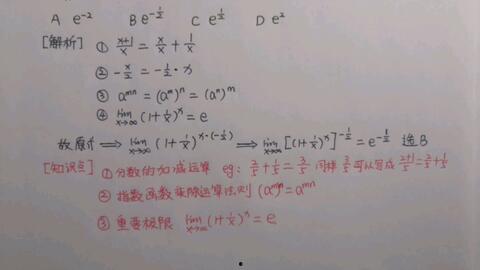 A e⁻² B e^{-1/2} C e^{1/2} D e²
[解析] ① \frac{x+1}{x} = \frac{x}{x} + \frac{1}{x}
② -\frac{x}{2} = -\frac{1}{2}·x
③ a^{mn} = (a^m)^n = (a^n)^m
④ \lim_{x→∞} (1+\frac{1}{x})^x = e
故原式 ⟹ \lim_{x→∞} (1+\frac{1}{x})^{x·(-\frac{1}{2})} ⟹ \lim_{x→∞} [(1+\frac{1}{x})^x]^{-\frac{1}{2}} = e^{-\frac{1}{2}} 选B
[知识点] ①分数的加减运算 eg: \frac{2}{5}+\frac{1}{5}=\frac{3}{5} 同样 \frac{3}{5} 可以写成 \frac{2+1}{5}=\frac{2}{5}+\frac{1}{5}
② 指数函数乘除运算法则 (a^m)^n = a^{mn}
③ 重要极限 \lim_{x→∞} (1+\frac{1}{x})^x = e